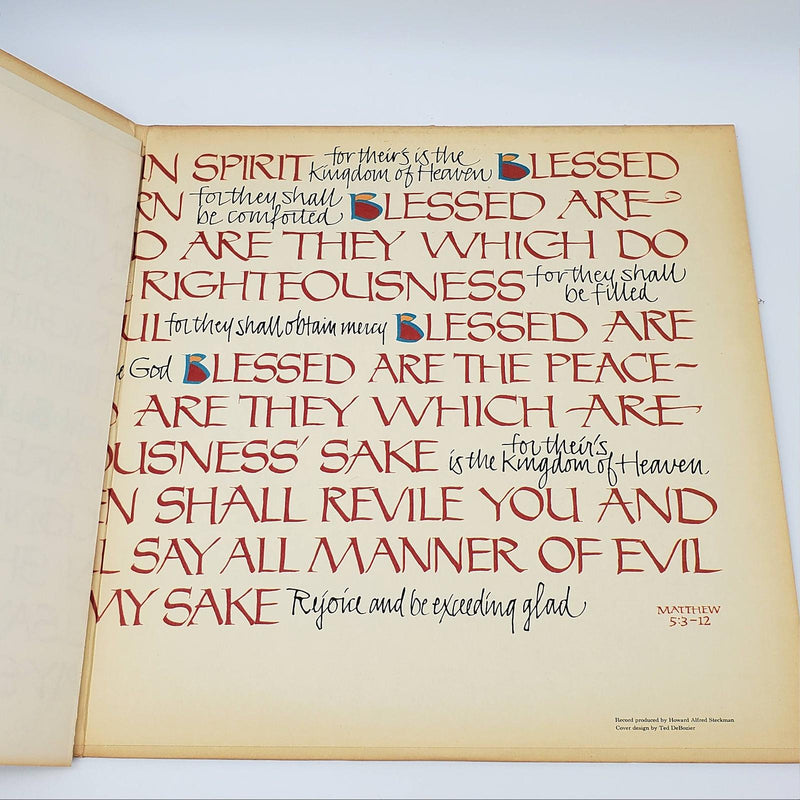 IN SPIRIT for their's is the Kingdom of Heaven BLESSED
RN for they shall be comforted BLESSED ARE
D ARE THEY WHICH DO
RIGHTEOUSNESS for they shall be filled
UL for they shall obtain mercy BLESSED ARE
e God BLESSED ARE THE PEACE-
ARE THEY WHICH ARE
OUSNESS' SAKE for their's is the Kingdom of Heaven
EN SHALL REVILE YOU AND
L SAY ALL MANNER OF EVIL
MY SAKE Rejoice and be exceeding glad
MATTHEW
5:3-12
Record produced by Howard Alfred Steckman
Cover design by Ted DeBozier